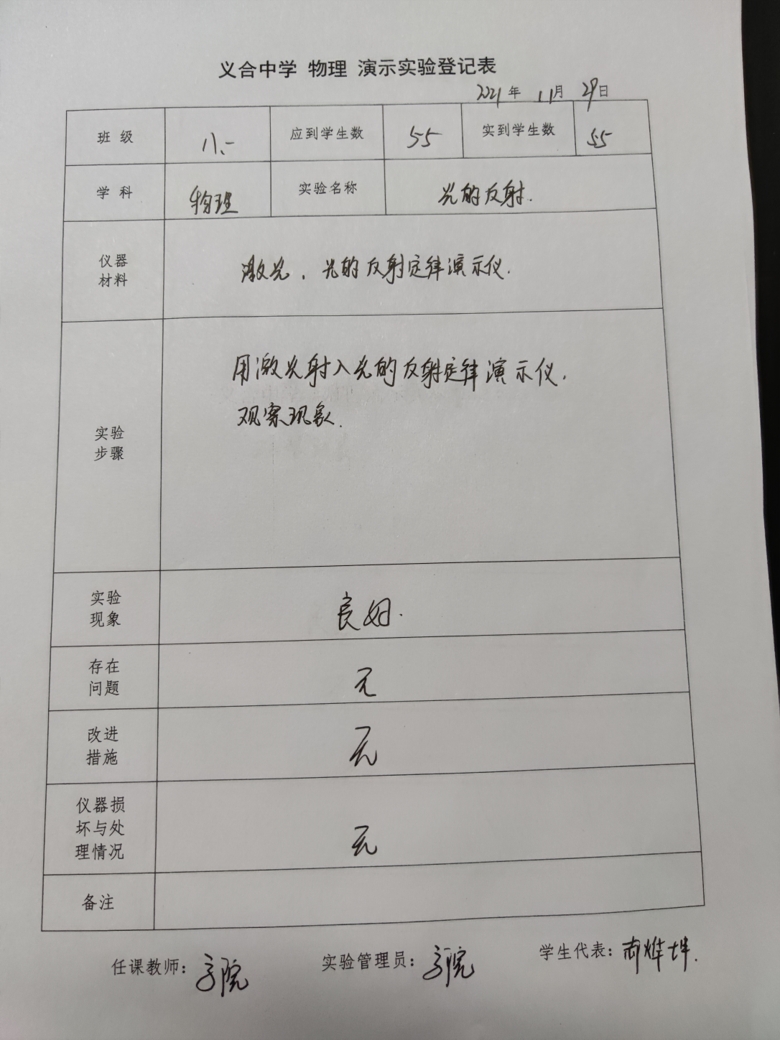 义合中学 物理 演示实验登记表
2021年 11月 29日
班级 八.一 应到学生数 55 实到学生数 55
学科 物理 实验名称 光的反射.
仪器
材料
激光、光的反射定律演示仪.
实验
步骤
用激光射入光的反射定律演示仪.
观察现象.
实验
现象
良好.
存在
问题
无
改进
措施
无
仪器损
坏与处
理情况
无
备注
任课教师: 实验管理员: 学生代表: